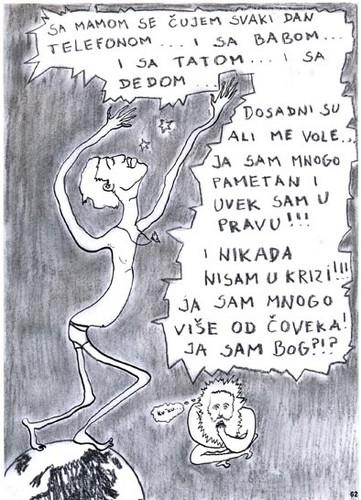 SA MAMOM SE ČUJEM SVAKI DAN
TELEFONOM... I SA BABOM...
I SA TATOM... I SA
DEDOM...
DOSADNI SU
ALI ME VOLE...
JA SAM MNOGO
PAMETAN I
UVEK SAM U
PRAVU!!!
I NIKADA
NISAM U KRIZI!!!!
JA SAM MNOGO
VIŠE OD ČOVEKA!
JA SAM BOG?!?
62